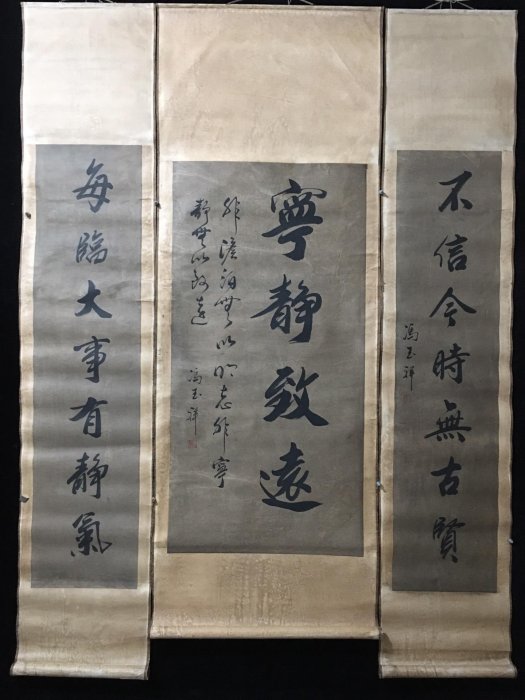 不信今時無古賢
馮玉祥
寧靜致遠
非澹泊無以明志非寧
靜無以致遠
馮玉祥
每臨大事有靜氣